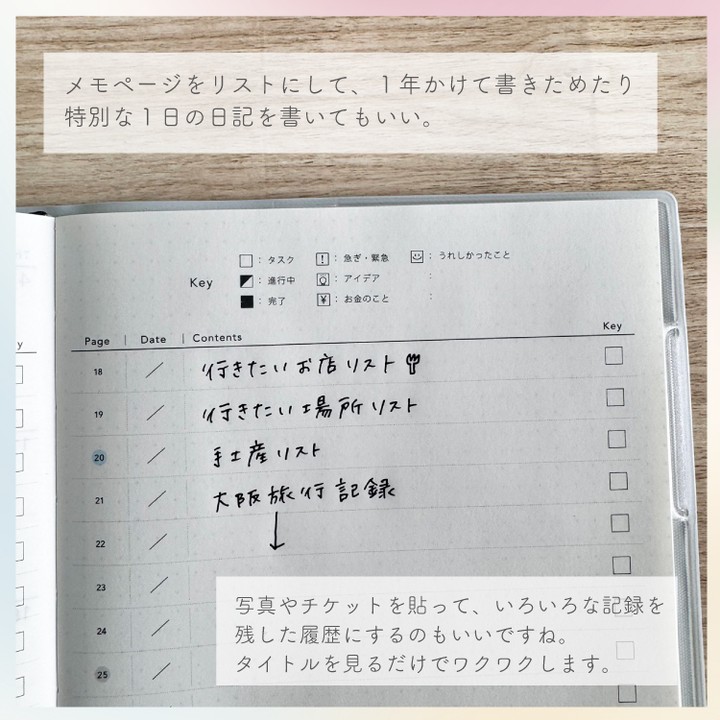 メモページをリストにして、1年かけて書きためたり
特別な1日の日記を書いてもいい。
Key
□：タスク
！：急ぎ・緊急
：うれしかったこと
：進行中
：アイデア
：
■：完了
¥：お金のこと
：
y
Page | Date | Contents Key
18 ／ 行きたいお店リスト
19 ／ 行きたい場所リスト
20 ／ 手土産リスト
21 ／ 大阪旅行記録
22 ／ ↓
23 ／
24 ／
25 ／
写真やチケットを貼って、いろいろな記録を
残した履歴にするのもいいですね。
タイトルを見るだけでワクワクします。